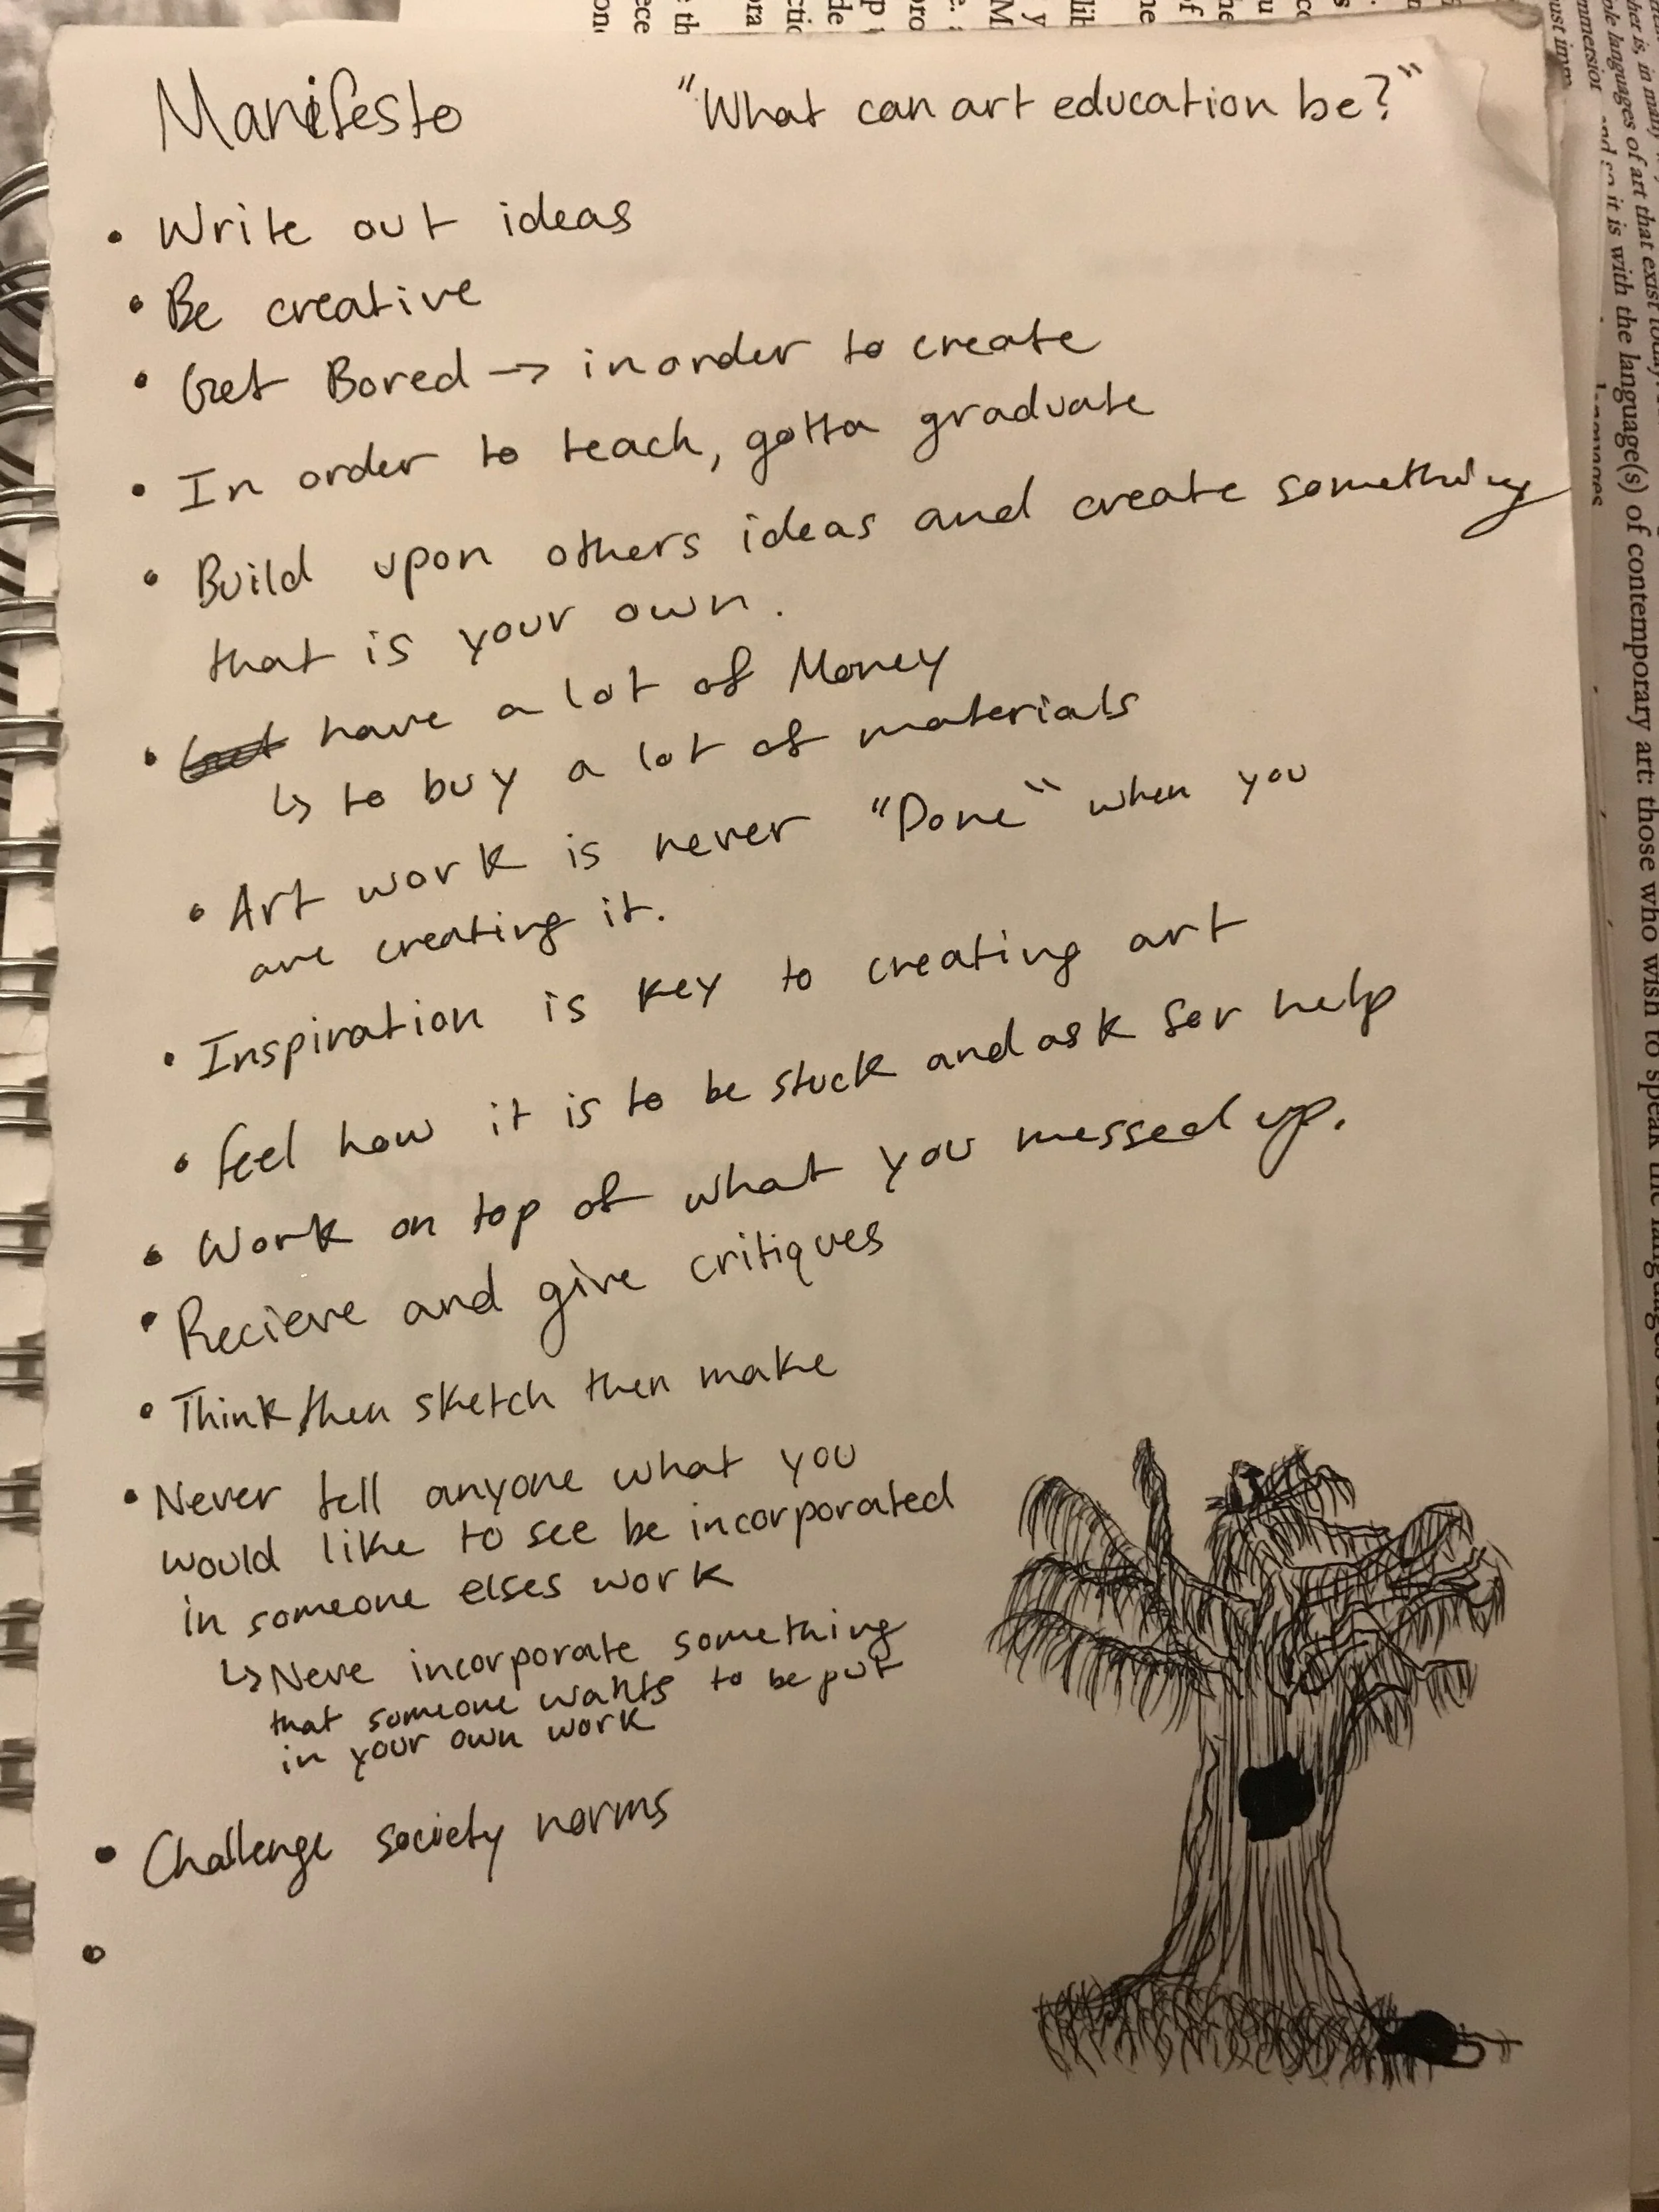 Manifesto "What can art education be?"
• Write out ideas
• Be creative
• Get Bored → inorder to create
• In order to teach, gotta graduate
• Build upon others ideas and create something
that is your own.
• have a lot of Money
↳ to buy a lot of materials
• Art work is never "Done" when you
are creating it.
• Inspiration is key to creating art
• feel how it is to be stuck and ask for help
• Work on top of what you messed up.
• Recieve and give critiques
• Think, then sketch then make
• Never tell anyone what you
would like to see be incorporated
in someone elses work
↳ Neve incorporate something
that someone wants to be put
in your own work
• Challenge society norms
•
ole languages of art that exist
and so it is with the language(s) of contemporary art: those who wish to speak the languages